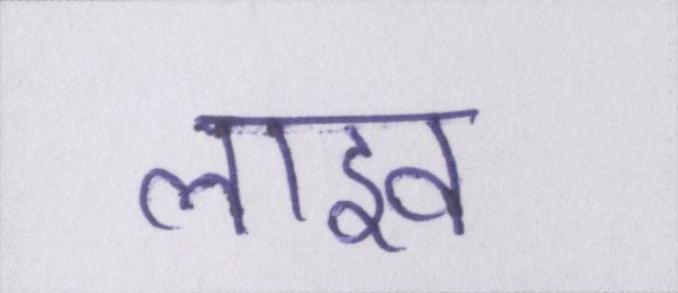 लाइव